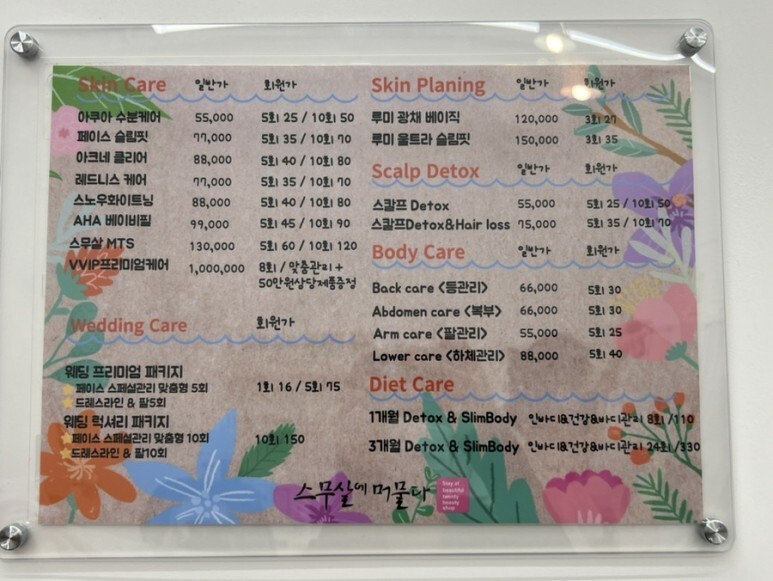 Skin Care 일반가 회원가
아쿠아 수분케어 55,000 5회 25 / 10회 50
페이스 슬림핏 77,000 5회 35 / 10회 70
아크네 클리어 88,000 5회 40 / 10회 80
레드니스 케어 77,000 5회 35 / 10회 70
스노우화이트닝 88,000 5회 40 / 10회 80
AHA 베이비필 99,000 5회 45 / 10회 90
스무살 MTS 130,000 5회 60 / 10회 120
VVIP프리미엄케어 1,000,000 8회 / 맞춤관리 +
50만원상당제품증정
Wedding Care 회원가
웨딩 프리미엄 패키지
페이스 스페셜관리 맞춤형 5회 1회 16 / 5회 75
드레스라인 & 팔5회
웨딩 럭셔리 패키지
페이스 스페셜관리 맞춤형 10회 10회 150
드레스라인 & 팔10회
Skin Planing 일반가 회원가
루미 광채 베이직 120,000 3회 27
루미 울트라 슬림핏 150,000 3회 35
Scalp Detox 일반가 회원가
스칼프 Detox 55,000 5회 25 / 10회 50
스칼프Detox&Hair loss 75,000 5회 35 / 10회 70
Body Care 일반가 회원가
Back care <등관리> 66,000 5회 30
Abdomen care <복부> 66,000 5회 30
Arm care <팔관리> 55,000 5회 25
Lower care <하체관리> 88,000 5회 40
Diet Care
1개월 Detox & SlimBody 인바디&건강&바디관리 8회 /110
3개월 Detox & SlimBody 인바디&건강&바디관리 24회 /330
스무살에 머물다
Stay at
beautiful
twenty
beauty
shop